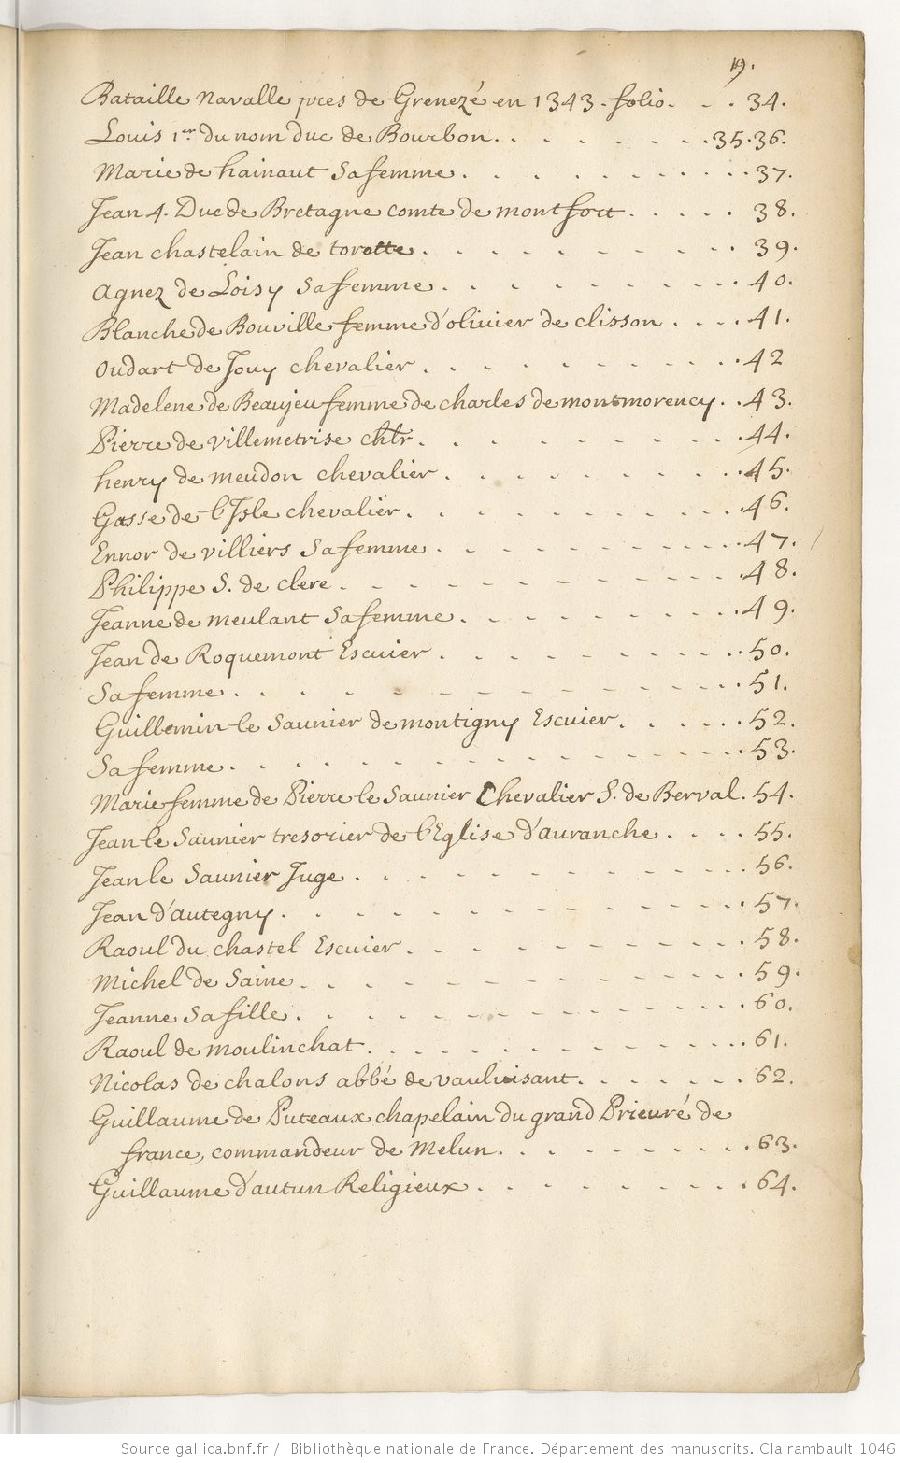 19.
Bataille Navalle pres de Grenezé en 1343. folio. . . 34.
Louis 1er du nom duc de Bourbon. . . . . . . . 35.36.
Marie de hainaut Sa femme. . . . . . . . . . 37.
Jean 4. Duc de Bretagne comte de montfort. . . . . 38.
Jean chastelain de torotte. . . . . . . . . . 39.
Agnez de Loisy Sa femme. . . . . . . . . . 40.
Blanche de Bouville femme d'olivier de clisson . . . . 41.
Oudart de Jouy chevalier. . . . . . . . . . 42
Madelene de Beaujeu femme de charles de montmorency. . 43.
Pierre de villemetrise chlr. . . . . . . . . . 44.
henry de meudon chevalier. . . . . . . . . . 45.
Gasse de l'Isle chevalier. . . . . . . . . . 46.
Ennor de villiers Sa femme. . . . . . . . . . 47.
Philippe S. de clere. . . . . . . . . . . 48.
Jeanne de meulant Sa femme. . . . . . . . . 49.
Jean de Roquemont Escuier. . . . . . . . . 50.
Sa femme. . . . . . . . . . . . . . 51.
Guillemin le Saunier de montigny Escuier. . . . . 52.
Sa femme. . . . . . . . . . . . . . 53.
Marie femme de Pierre le Saunier Chevalier S. de Berval. 54.
Jean le Saunier tresorier de l'Eglise d'auranche. . . . 55.
Jean le Saunier Juge. . . . . . . . . . . 56.
Jean d'autegny. . . . . . . . . . . . 57.
Raoul du chastel Escuier. . . . . . . . . . 58.
Michel de Saine. . . . . . . . . . . . 59.
Jeanne Sa fille. . . . . . . . . . . . 60.
Raoul de moulinchat. . . . . . . . . . . 61.
Nicolas de chalons abbé de vauluisant. . . . . . 62.
Guillaume de Puteaux chapelain du grand Prieuré de
france, commandeur de Melun. . . . . . . . 63.
Guillaume d'autun Religieux. . . . . . . . . 64.
Source gallica.bnf.fr / Bibliothèque nationale de France. Département des manuscrits. Clairambault 1046